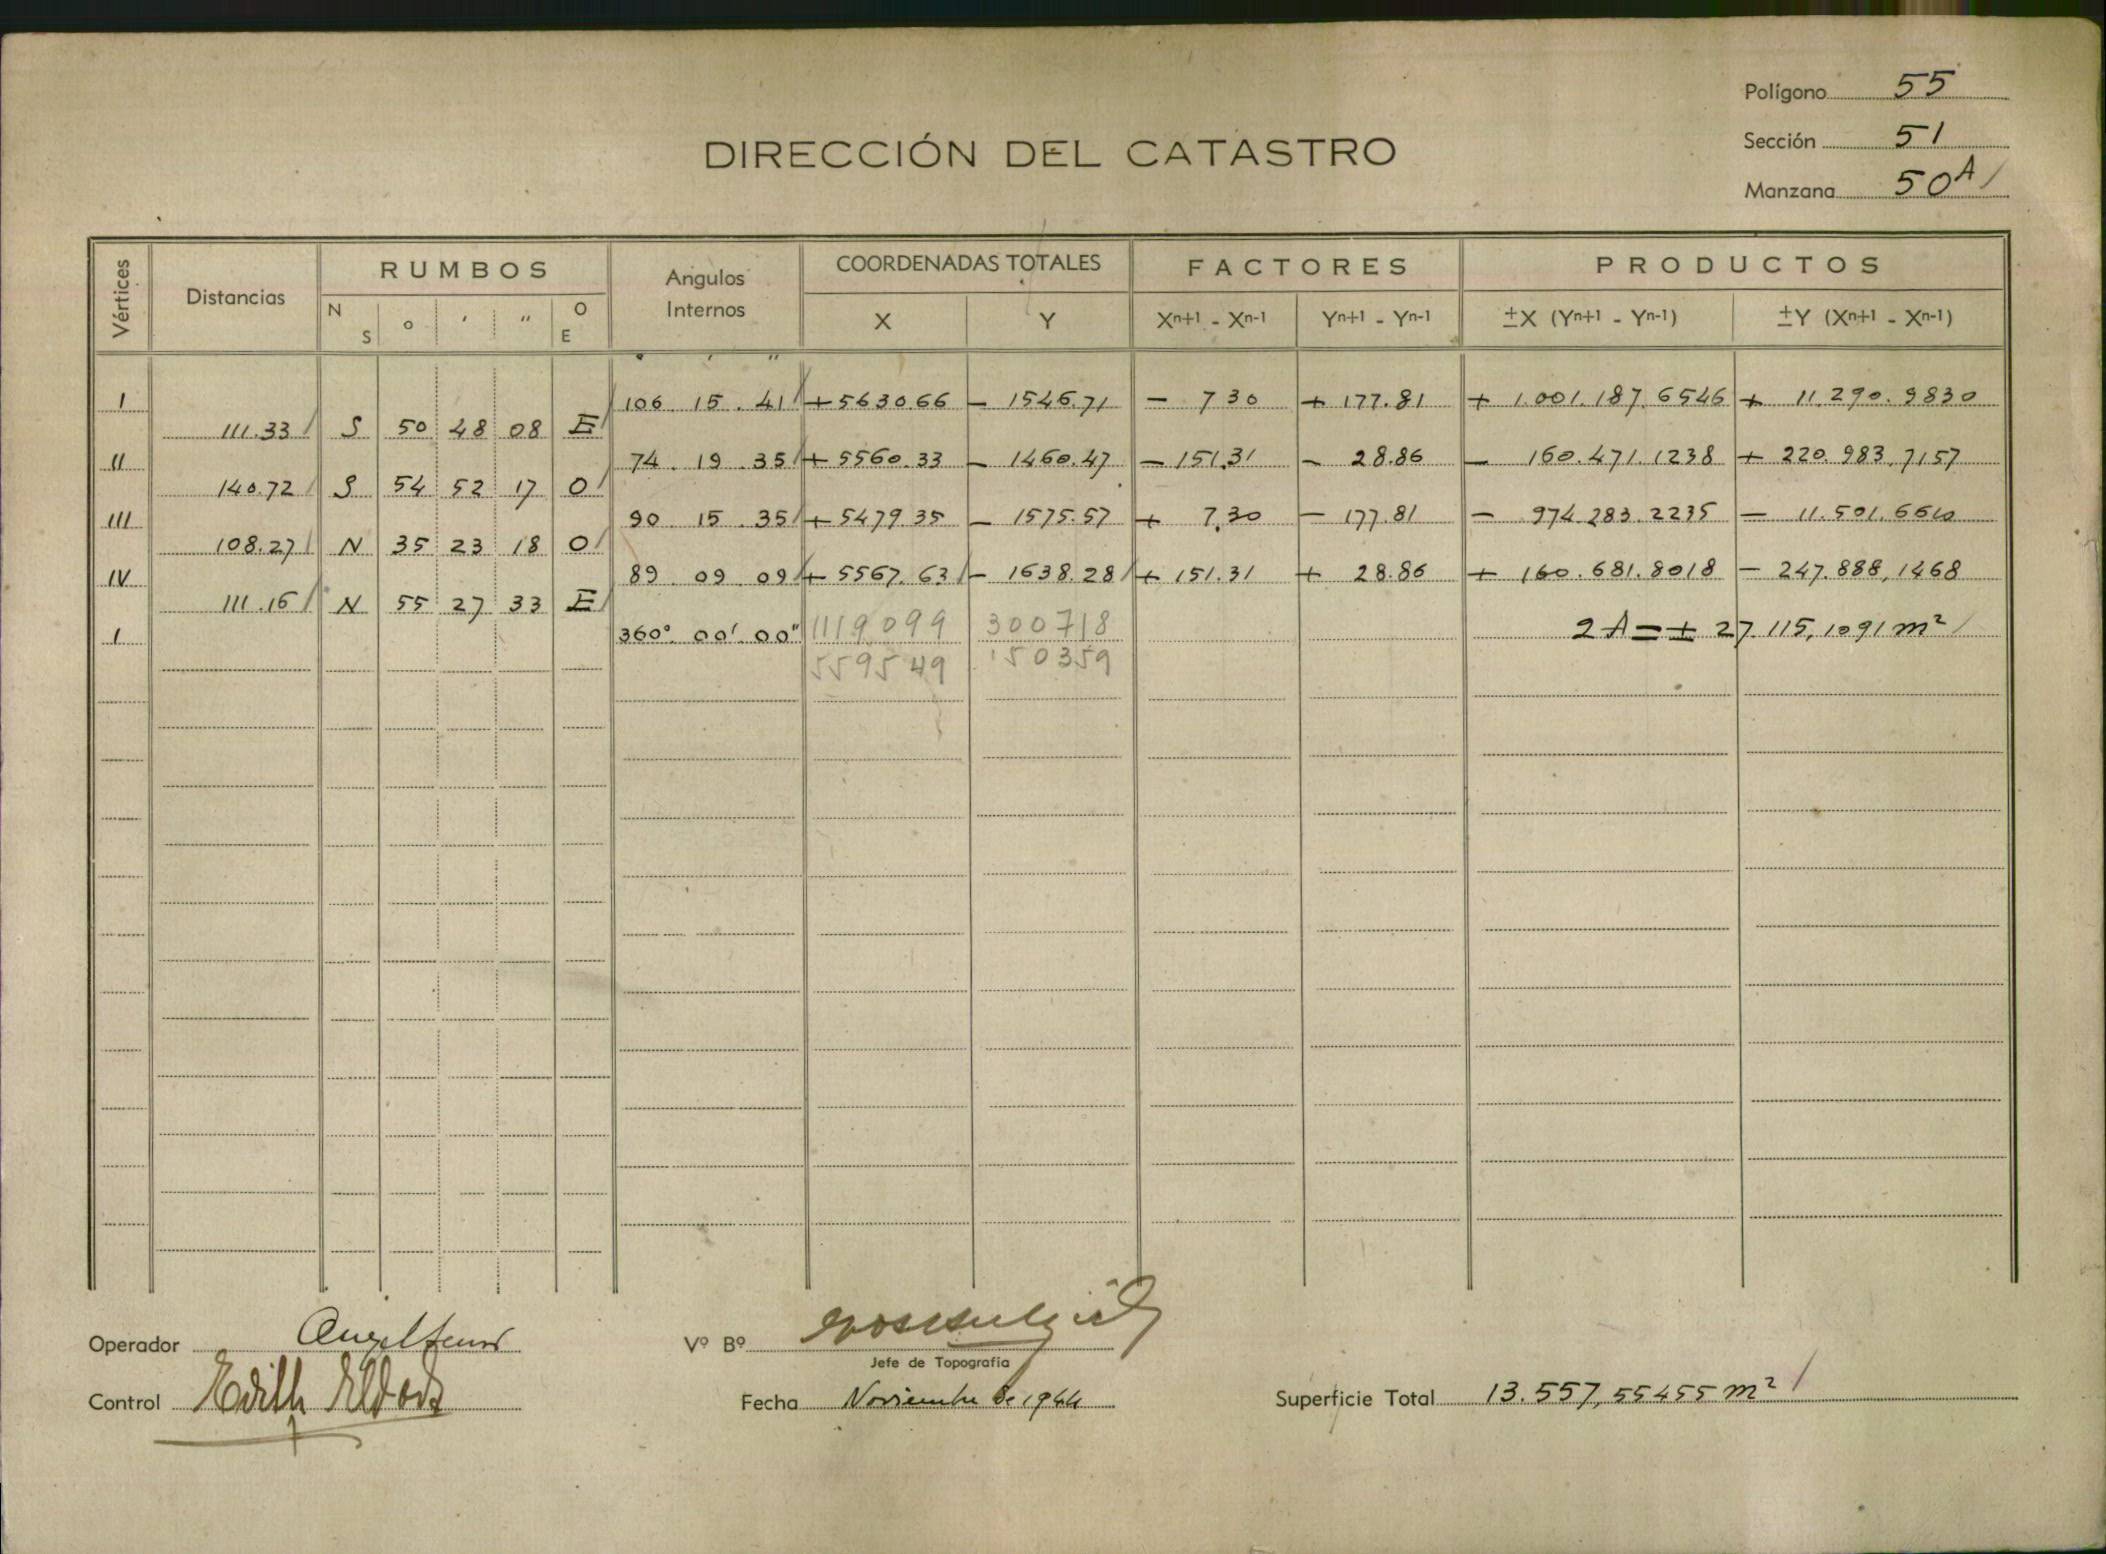 Polígono 55
Sección 51
Manzana 50A
DIRECCIÓN DEL CATASTRO
Vértices Distancias RUMBOS Angulos Internos COORDENADAS TOTALES FACTORES PRODUCTOS
N S o ' " O E X Y Xn+1 - Xn-1 Yn+1 - Yn-1 ±X (Yn+1 - Yn-1) ±Y (Xn+1 - Xn-1)
° ' "
I 106 15 41 +5630.66 - 1546.71 - 7 30 + 177.81 + 1.001.187.6546 + 11.290.9830
111.33 S 50 48 08 E
II 74 19 35 + 5560.33 - 1460.47 - 151.31 - 28.86 - 160.471.1238 + 220.983,7157
140.72 S 54 52 17 O
III 90 15 35 + 5479 35 - 1575.57 + 7,30 - 177.81 - 974.283.2235 - 11.501.6610
108.27 N 35 23 18 O
IV 89 09 09 + 5567.63 - 1638.28 + 151.31 + 28.86 + 160.681.8018 - 247.888,1468
111.16 N 55 27 33 E
I 360° 00' 00" 1119099 300718 2A = + 27.115,1091 m²
559549 150359
Operador
Vº Bº
Jefe de Topografía
Control Edith
Fecha Noviembre de 1944
Superficie Total 13.557,55455 m²